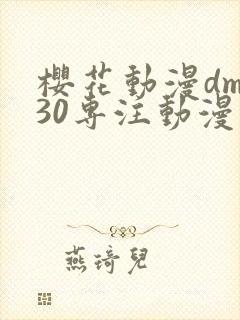 櫻花動漫dm
30專注動漫
燕琦兒